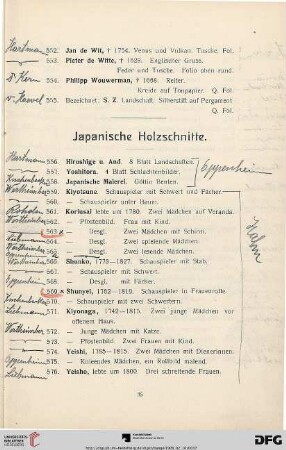 Hartman 552. Jan de Wit, † 1754. Venus und Vulkan. Tusche. Fol.
553. Pieter de Witte, † 1628. Englischer Gruss.
Feder und Tusche. Folio oben rund.
554. Philipp Wouwerman, † 1668. Reiter.
Kreide auf Tonpapier. Q. Fol.
555. Bezeichnet: S. Z. Landschaft. Silberstift auf Pergament
Q. Fol.
Japanische Holzschnitte.
Hartmann 556. Hiroshige u. And. 8 Blatt Landschaften.
557. Yoshitora. 4 Blatt Schlachtenbilder.
Oppenheim
558. Japanische Malerei. Göttin Benten.
559. Kiyotsuna. Schauspieler mit Schwert und Fächer.
560. — Schauspieler unter Bauer.
561. Koriusai lebte um 1780. Zwei Mädchen auf Veranda.
562. — Pfostenbild. Frau mit Kind.
563. × — Desgl. Zwei Mädchen mit Schirm.
Liebmann 564. — Desgl. Zwei spielende Mädchen.
565. — Desgl. Zwei lesende Mädchen.
566. Shunko, 1778—1827. Schauspieler mit Stab.
567. — Schauspieler mit Schwert.
568. — Desgl. mit Fächer.
569. × Shunyei, 1762—1819. Schauspieler in Frauenrolle.
570. — Schauspieler mit zwei Schwertern.
Liebmann 571. Kiyonaga, 1742—1815. Zwei junge Mädchen vor
offenem Haus.
572. — Junge Mädchen mit Katze.
573. — Pfostenbild. Zwei Frauen mit Kind.
574. Yeishi, 1785—1815. Zwei Mädchen mit Dienerinnen.
Oppenheim 575. — Knieendes Mädchen, ein Rollbild malend.
Liebmann 576. Yeisho, lebte um 1800. Drei schreitende Frauen.
UNIVERSITÄTS-BIBLIOTHEK HEIDELBERG
DFG